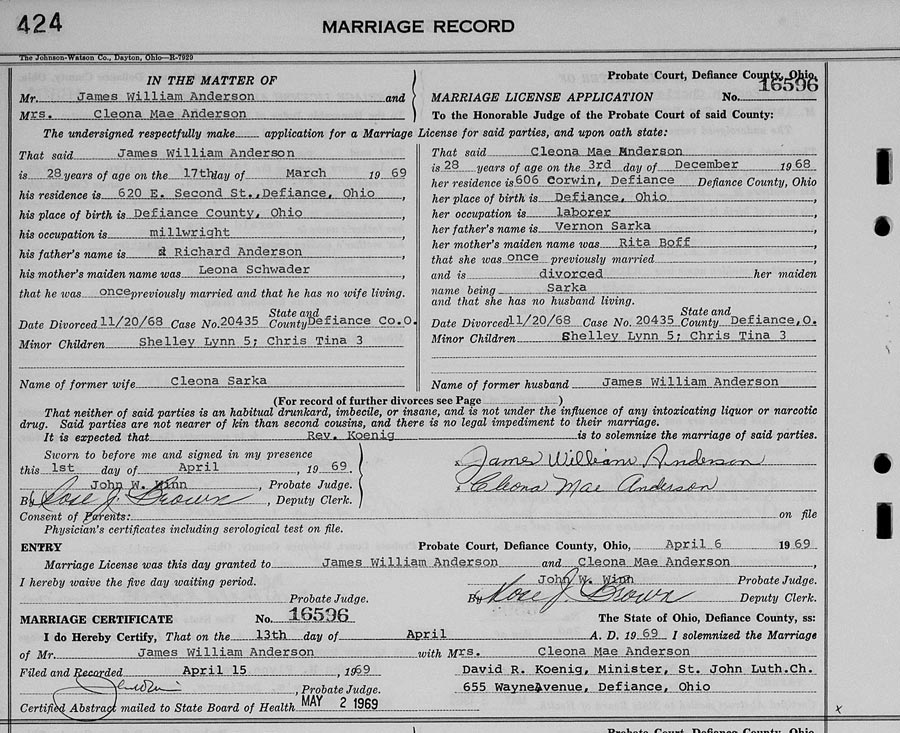 424
MARRIAGE RECORD
The Johnson-Watson Co., Dayton, Ohio—R-7929
IN THE MATTER OF
Mr. James William Anderson and
Mrs. Cleona Mae Anderson
Probate Court, Defiance County, Ohio,
MARRIAGE LICENSE APPLICATION No. 16596
To the Honorable Judge of the Probate Court of said County:
The undersigned respectfully make application for a Marriage License for said parties, and upon oath state:
That said James William Anderson
is 28 years of age on the 17th day of March 1969
his residence is 620 E. Second St., Defiance, Ohio,
his place of birth is Defiance County, Ohio,
his occupation is millwright,
his father's name is Richard Anderson
his mother's maiden name was Leona Schwader
that he was once previously married and that he has no wife living.
Date Divorced 11/20/68 Case No. 20435 State and County Defiance Co.O.
Minor Children Shelley Lynn 5; Chris Tina 3
Name of former wife Cleona Sarka
That said Cleona Mae Anderson
is 28 years of age on the 3rd day of December 1968
her residence is 606 Corwin, Defiance Defiance County, Ohio
her place of birth is Defiance, Ohio,
her occupation is laborer,
her father's name is Vernon Sarka,
her mother's maiden name was Rita Boff,
that she was once previously married,
and is divorced her maiden
name being Sarka
and that she has no husband living.
Date Divorced 11/20/68 Case No. 20435 State and County Defiance, O.
Minor Children Shelley Lynn 5; Chris Tina 3
Name of former husband James William Anderson
(For record of further divorces see Page )
That neither of said parties is an habitual drunkard, imbecile, or insane, and is not under the influence of any intoxicating liquor or narcotic
drug. Said parties are not nearer of kin than second cousins, and there is no legal impediment to their marriage.
It is expected that Rev. Koenig is to solemnize the marriage of said parties.
Sworn to before me and signed in my presence
this 1st day of April, 1969.
John W. Winn, Probate Judge.
By Rose J. Brown, Deputy Clerk.
James William Anderson
Cleona Mae Anderson
Consent of Parents: on file
Physician's certificates including serological test on file.
ENTRY Probate Court, Defiance County, Ohio, April 6 1969
Marriage License was this day granted to James William Anderson and Cleona Mae Anderson
I hereby waive the five day waiting period. John W. Winn Probate Judge.
Probate Judge. By Rose J. Brown Deputy Clerk.
MARRIAGE CERTIFICATE No. 16596 The State of Ohio, Defiance County, ss:
I do Hereby Certify, That on the 13th day of April A. D. 1969 I solemnized the Marriage
of Mr. James William Anderson with Mrs. Cleona Mae Anderson
Filed and Recorded April 15, 1969 David R. Koenig, Minister, St. John Luth.Ch.
, Probate Judge. 655 Wayne Avenue, Defiance, Ohio
Certified Abstract mailed to State Board of Health MAY 2 1969
x
Probate Court, Defiance County, Ohio,